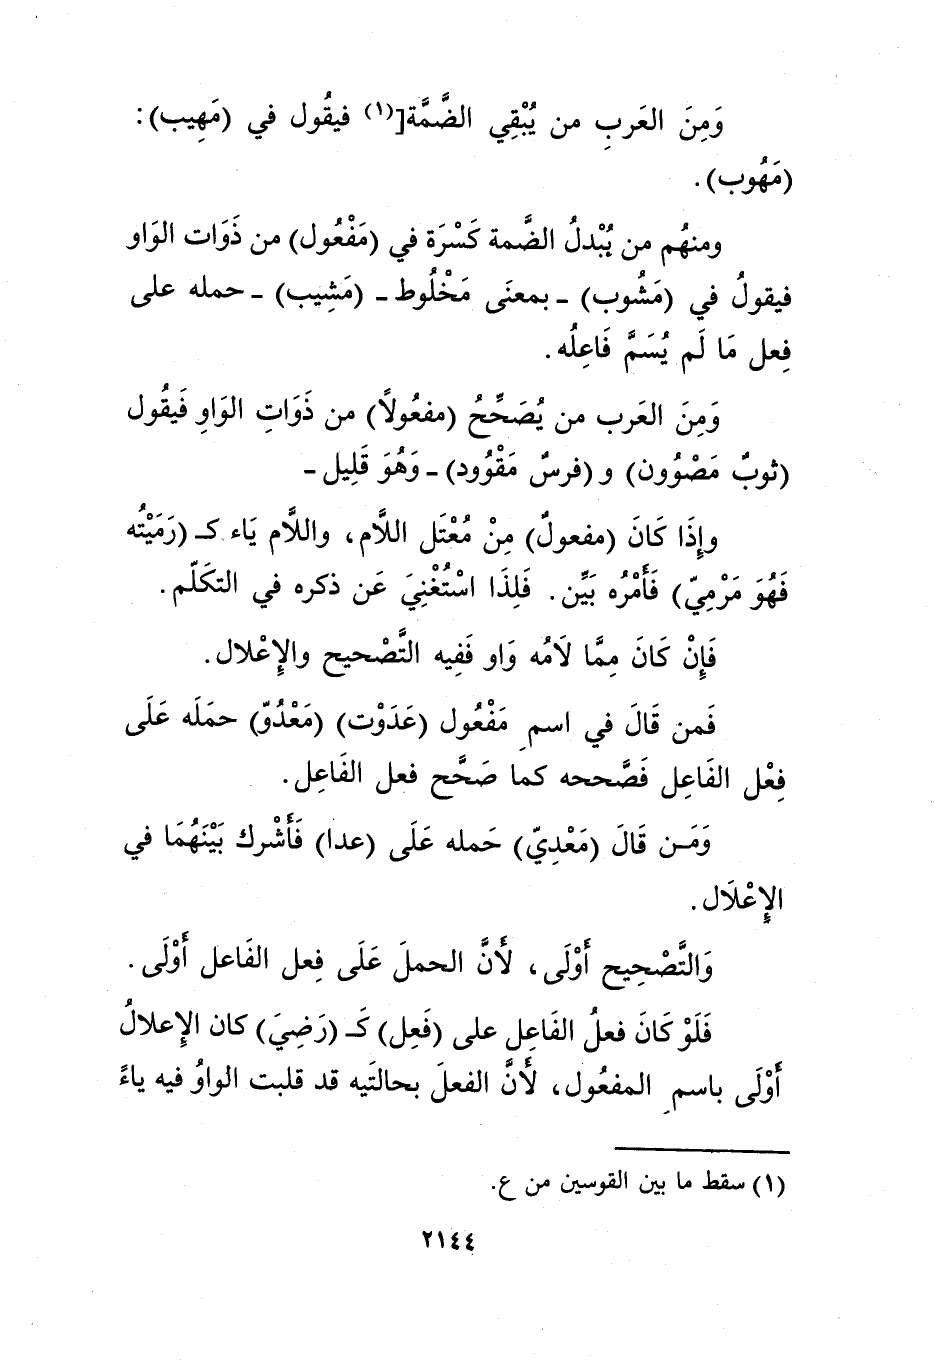 وَمِنَ العَربِ من يُبْقِي الضَّمَّة](١) فيقُول في (مَهِيب):
(مَهُوب).
ومنهُم من يُبْدلُ الضمة كَسْرَة في (مَفْعُول) من ذَوَات الوَاو
فيقولُ في (مَشُوب) ـ بمعنَى مَخْلُوط ـ (مَشِيب) ـ حمله على
فِعل مَا لَم يُسَمَّ فَاعِلُه.
وَمِنَ العَرب من يُصَحِّحُ (مفعُولاً) من ذَوَاتِ الوَاوِ فَيقُول
(ثوبٌ مَصْوُون) و (فرسٌ مَقْوُود) ـ وَهُوَ قَلِيل ـ
وإِذَا كَانَ (مفعولٌ) مِنْ مُعْتَل اللَّام، واللَّام يَاء كـ (رَمَيْتُه
فَهُوَ مَرْمِيّ) فَأَمْرُه بَيِّن. فَلِذَا اسْتُغْنِيَ عَن ذكره في التكَلّم.
فَإِنْ كَانَ مِمَّا لَامُه وَاو فَفِيه التَّصْحيح والإِعْلال.
فَمن قَالَ في اسمِ مَفْعُول (عَدَوْت) (مَعْدُوّ) حمَلَه عَلَى
فِعْل الفَاعِل فَصَّححه كما صَحَّح فعل الفَاعِل.
وَمَـن قَالَ (مَعْدِيّ) حَمله عَلَى (عدا) فَأَشْرك بَيْنَهُمَا في
الإِعْلَال.
وَالتَّصْحِيح أَوْلَى، لَأنَّ الحملَ عَلَى فِعل الفَاعل أَوْلَى.
فَلَوْ كَانَ فعلُ الفَاعِل على (فَعِل) كَـ (رَضِيَ) كان الإِعلالُ
أَوْلَى باسمِ المفعُول، لَأنَّ الفعلَ بحالتَيه قد قلبت الواوُ فيه ياءً
(١) سقط ما بين القوسين من ع.
٢١٤٤